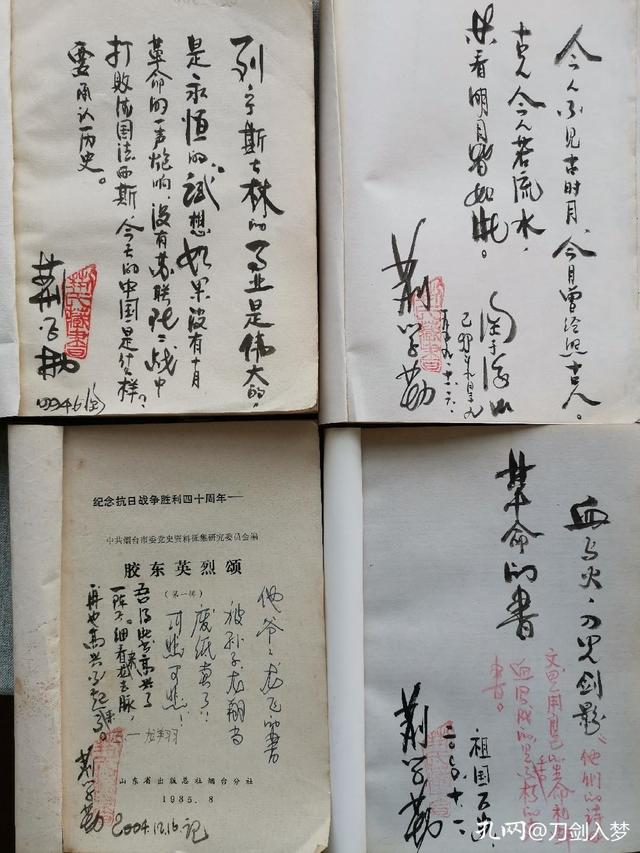 列宁斯大林的事业是伟大的，
是永恒的，试想如果没有十月
革命的一声炮响，没有苏联在二战中
打败德国法西斯，今天的中国是什么样？
要承认历史。
荆学勤
1994.6
今人不见古时月，今月曾经照古人。
古人今人若流水，
共看明月皆如此。
荆学勤
纪念抗日战争胜利四十周年——
中共烟台市委党史资料征集研究委员会编
胶东英烈颂
（第一辑）
他爷爷龙飞的书
被孙子龙翔当
废纸卖了！
可悲可悲！
吾得此书高兴了
一阵子。细看来龙去脉，
再也高兴不起来了。
荆学勤
山东省出版总社烟台分社
1985.8
2004.12.16.记
血与火、刀光剑影
革命的书
他们的诗
文是用自己的生命和
祖国万岁
荆学勤
孔网@刀剑入梦